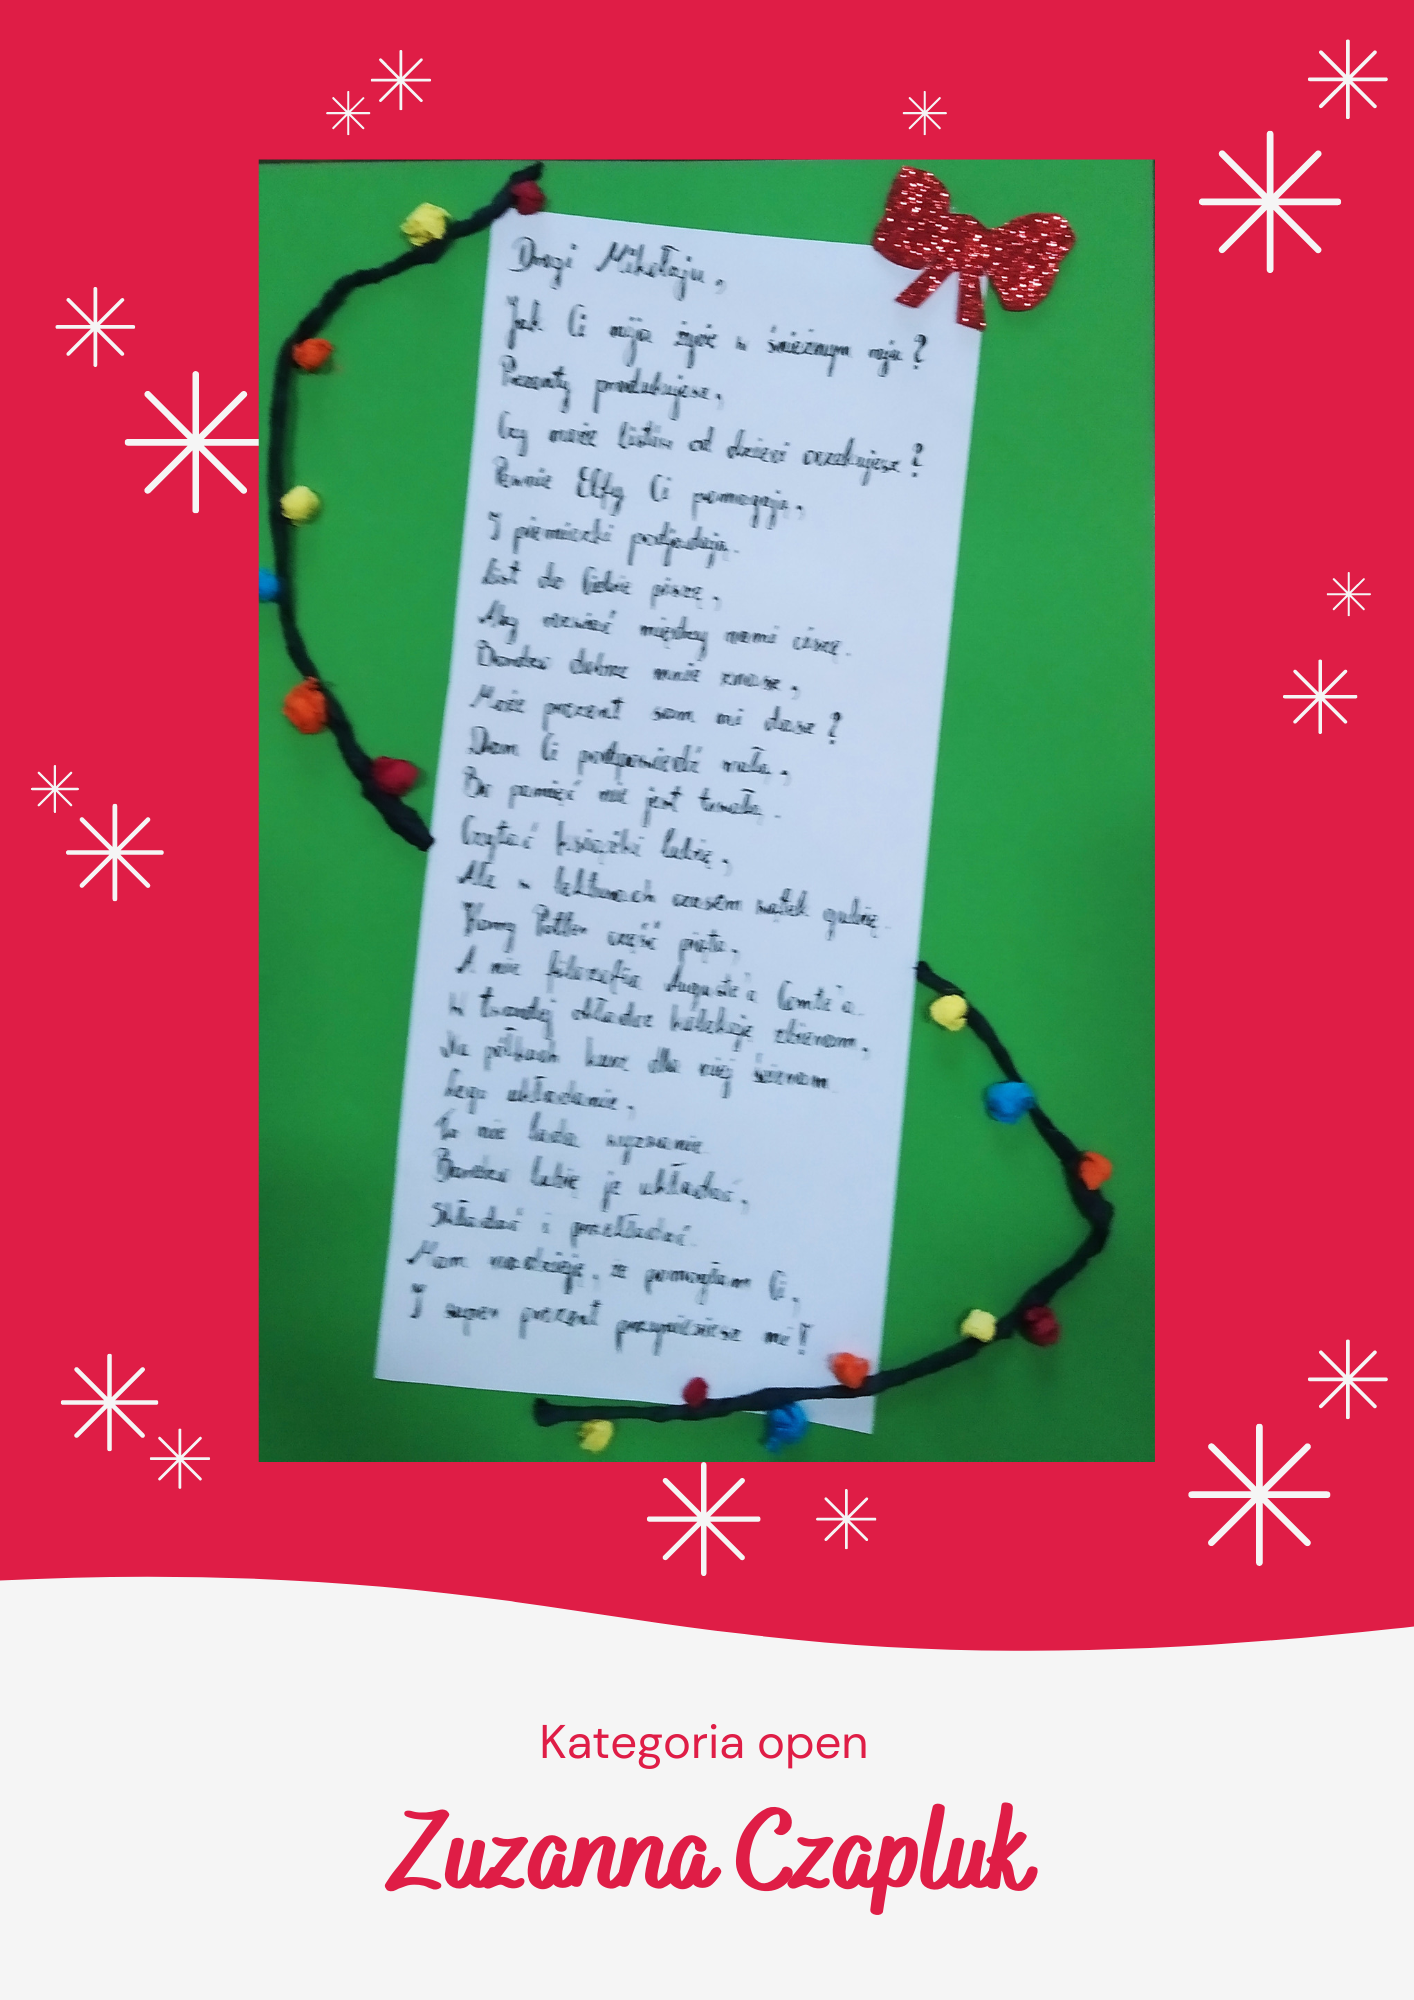 Drogi Mikołaju,
Jak Ci mija życie w śnieżnym raju?
Prezenty produkujesz,
Czy może listów od dzieci oczekujesz?
Pewnie Elfy Ci pomagają,
I pierniczki podjadają.
List do Ciebie piszę,
Aby rozwiać między nami ciszę.
Bardzo dobrze mnie znasz,
Może prezent sam mi dasz?
Dam Ci podpowiedź małą,
Bo pamięć nie jest trwałą.
Czytać książki lubię,
Ale w lekturach czasem wątek gubię.
Harry Potter część piąta,
A nie filozofia Auguste'a Comte'a.
W twardej okładce kolekcję zbieram,
Na półkach kurz dla niej ścieram.
Lego układanie,
To nie lada wyzwanie.
Bardzo lubię je układać,
Składać i przekładać.
Mam nadzieję, że pomogłam Ci,
I super prezent przyniesiesz mi!
Kategoria open
Zuzanna Czapluk